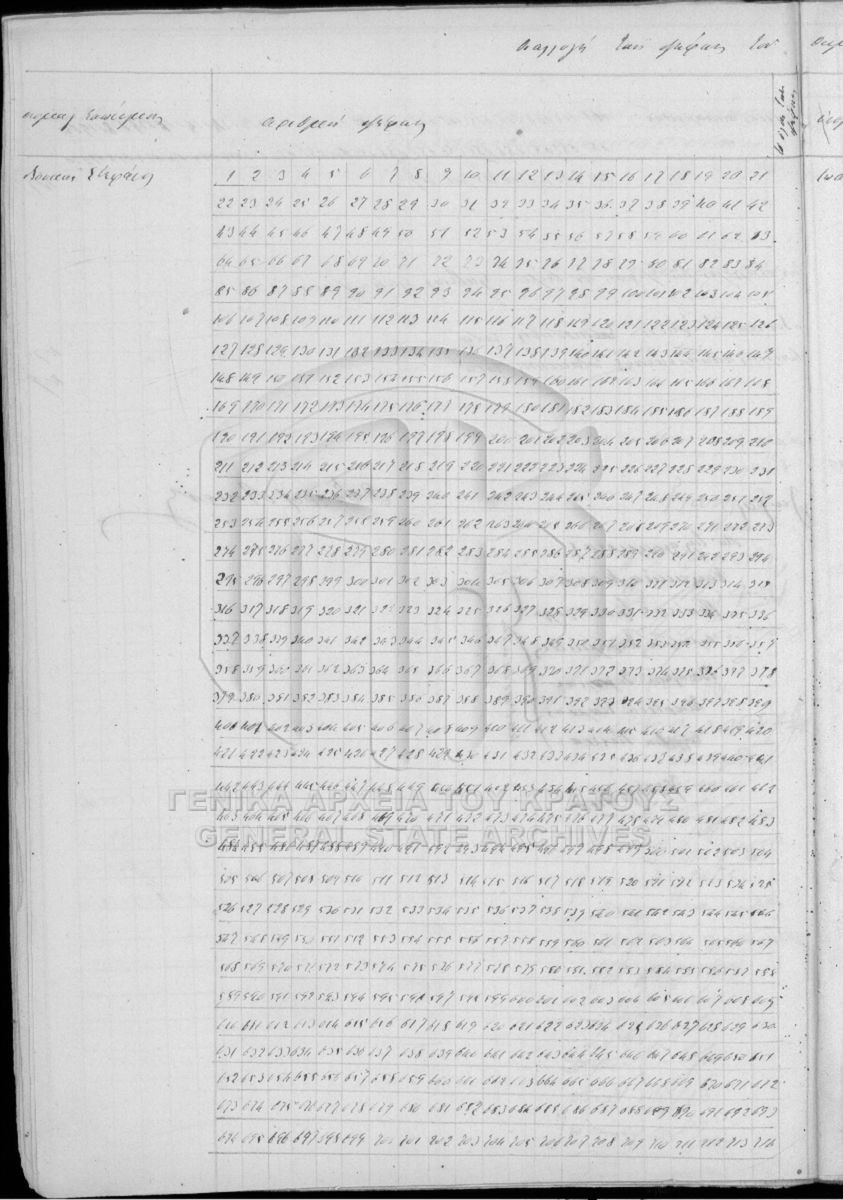 Διαλλογή των ψήφων του
αριθμοί ψήφων
1 2 3 4 5 6 7 8 9 10 11 12 13 14 15 16 17 18 19 20 21
22 23 24 25 26 27 28 29 30 31 32 33 34 35 36 37 38 39 40 41 42
43 44 45 46 47 48 49 50 51 52 53 54 55 56 57 58 59 60 61 62 63
64 65 66 67 68 69 70 71 72 73 74 75 76 77 78 79 80 81 82 83 84
85 86 87 88 89 90 91 92 93 94 95 96 97 98 99 100 101 102 103 104 105
106 107 108 109 110 111 112 113 114 115 116 117 118 119 120 121 122 123 124 125 126
127 128 129 130 131 132 133 134 135 136 137 138 139 140 141 142 143 144 145 146 147
148 149 150 151 152 153 154 155 156 157 158 159 160 161 162 163 164 165 166 167 168
169 170 171 172 173 174 175 176 177 178 179 180 181 182 183 184 185 186 187 188 189
190 191 192 193 194 195 196 197 198 199 200 201 202 203 204 205 206 207 208 209 210
211 212 213 214 215 216 217 218 219 220 221 222 223 224 225 226 227 228 229 230 231
232 233 234 235 236 237 238 239 240 241 242 243 244 245 246 247 248 249 250 251 252
253 254 255 256 257 258 259 260 261 262 263 264 265 266 267 268 269 270 271 272 273
274 275 276 277 278 279 280 281 282 283 284 285 286 287 288 289 290 291 292 293 294
295 296 297 298 299 300 301 302 303 304 305 306 307 308 309 310 311 312 313 314 315
316 317 318 319 320 321 322 323 324 325 326 327 328 329 330 331 332 333 334 335 336
337 338 339 340 341 342 343 344 345 346 347 348 349 350 351 352 353 354 355 356 357
358 359 360 361 362 363 364 365 366 367 368 369 370 371 372 373 374 375 376 377 378
379 380 381 382 383 384 385 386 387 388 389 390 391 392 393 394 395 396 397 398 399
400 401 402 403 404 405 406 407 408 409 410 411 412 413 414 415 416 417 418 419 420
421 422 423 424 425 426 427 428 429 430 431 432 433 434 435 436 437 438 439 440 441
442 443 444 445 446 447 448 449 450 451 452 453 454 455 456 457 458 459 460 461 462
ΓΕΝΙΚΑ ΑΡΧΕΙΑ ΤΟΥ ΚΡΑΤΟΥΣ
463 464 465 466 467 468 469 470 471 472 473 474 475 476 477 478 479 480 481 482 483
GENERAL STATE ARCHIVES
484 485 486 487 488 489 490 491 492 493 494 495 496 497 498 499 500 501 502 503 504
505 506 507 508 509 510 511 512 513 514 515 516 517 518 519 520 521 522 523 524 525
526 527 528 529 530 531 532 533 534 535 536 537 538 539 540 541 542 543 544 545 546
547 548 549 550 551 552 553 554 555 556 557 558 559 560 561 562 563 564 565 566 567
568 569 570 571 572 573 574 575 576 577 578 579 580 581 582 583 584 585 586 587 588
589 590 591 592 593 594 595 596 597 598 599 600 601 602 603 604 605 606 607 608 609
610 611 612 613 614 615 616 617 618 619 620 621 622 623 624 625 626 627 628 629 630
631 632 633 634 635 636 637 638 639 640 641 642 643 644 645 646 647 648 649 650 651
652 653 654 655 656 657 658 659 660 661 662 663 664 665 666 667 668 669 670 671 672
673 674 675 676 677 678 679 680 681 682 683 684 685 686 687 688 689 690 691 692 693
694 695 696 697 698 699 700 701 702 703 704 705 706 707 708 709 710 711 712 713 714